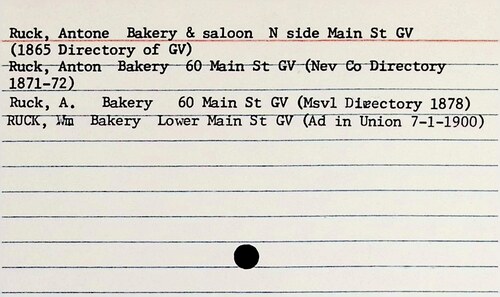 Ruck, Antone Bakery & saloon N side Main St GV
(1865 Directory of GV)
Ruck, Anton Bakery 60 Main St GV (Nev Co Directory
1871-72)
Ruck, A. Bakery 60 Main St GV (Msvl Directory 1878)
RUCK, Wm Bakery Lower Main St GV (Ad in Union 7-1-1900)